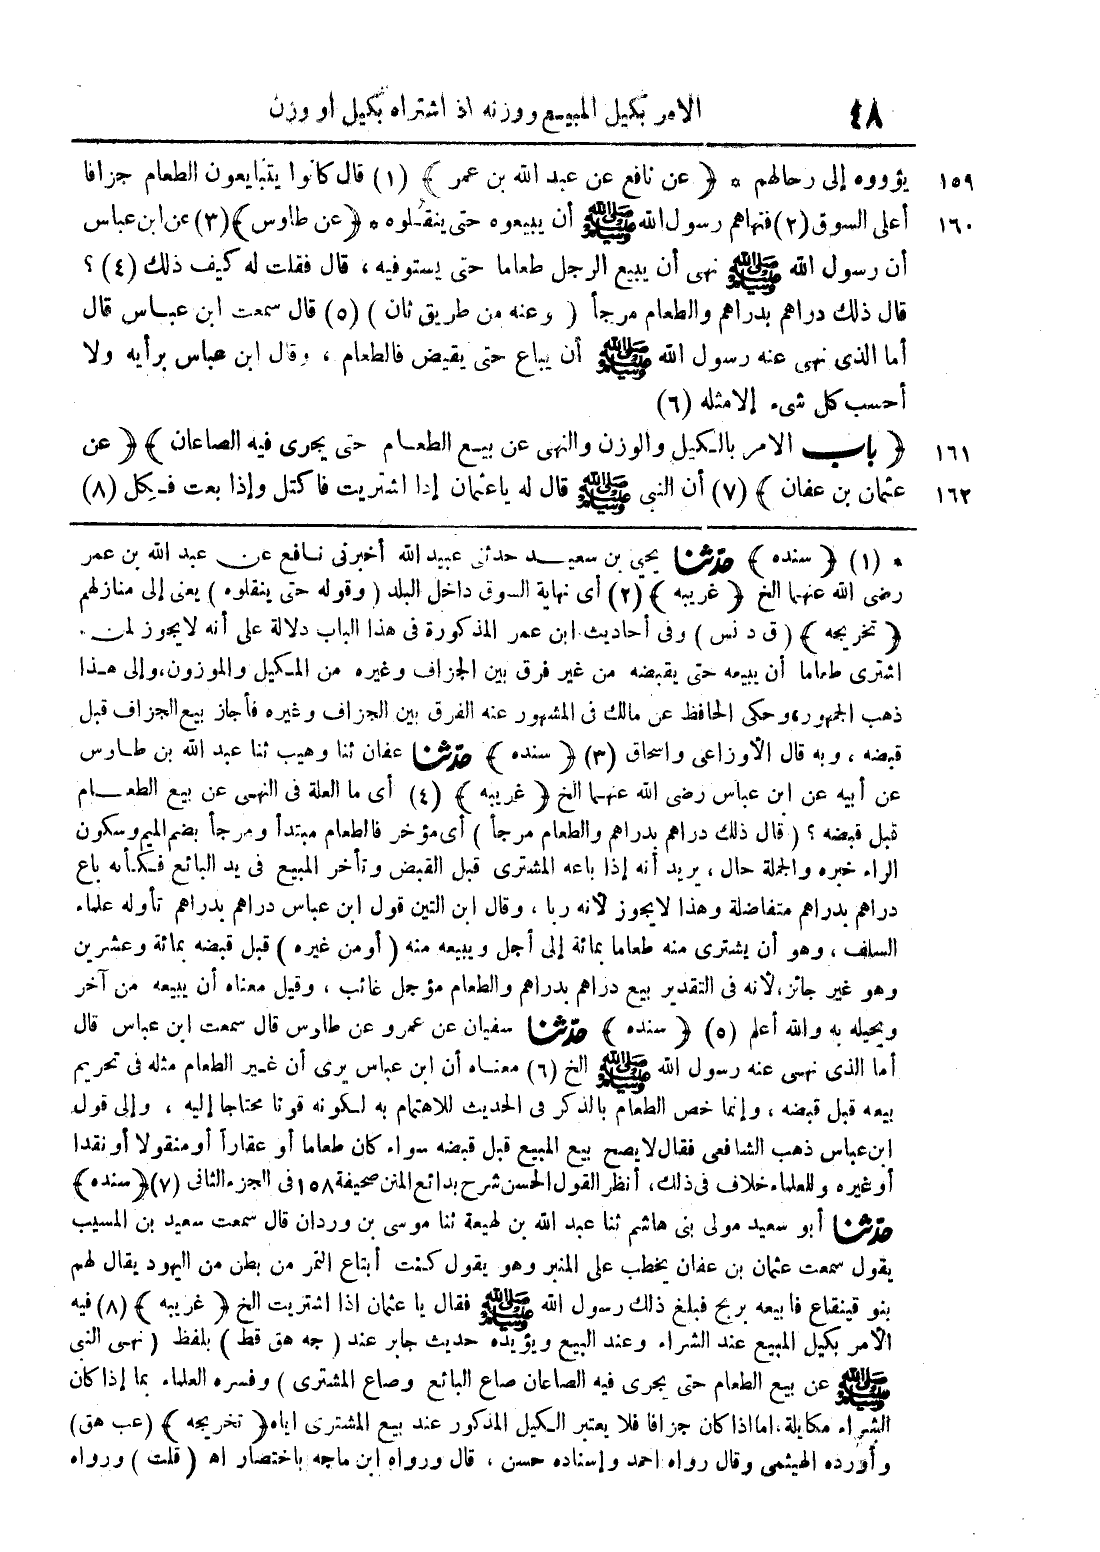 ٤٨ الامر بكيل المبيع ووزنه اذ اشتراه بكيل او وزن
١٥٩ يؤووه إلى رحالهم * ﴿ عن نافع عن عبد الله بن عمر ﴾ (١) قال كانوا يتبايعون الطعام جزافا
١٦٠ أعلى السوق (٢) فنهاهم رسول الله ﷺ أن يبيعوه حتى ينقلوه * ﴿ عن طاوس ﴾ (٣) عن ابن عباس
أن رسول الله ﷺ نهى أن يبيع الرجل طعاما حتى يستوفيه ، قال فقلت له كيف ذلك (٤) ؟
قال ذلك دراهم بدراهم والطعام مرجأ ( وعنه من طريق ثان ) (٥) قال سمعت ابن عباس قال
أما الذى نهى عنه رسول الله ﷺ أن يباع حتى يقبض فالطعام ، وقال ابن عباس برأيه ولا
أحسب كل شىء إلا مثله (٦)
١٦١ ﴿ باب الامر بالكيل والوزن والنهى عن بيع الطعام حتى يجرى فيه الصاعان ﴾ ﴿ عن
١٦٢ عثمان بن عفان ﴾ (٧) أن النبى ﷺ قال له يا عثمان إذا اشتريت فاكتل وإذا بعت فكل (٨)
* (١) ﴿ سنده ﴾ حدثنا يحيى بن سعيد حدثنى عبيد الله أخبرنى نافع عن عبد الله بن عمر
رضى الله عنهما الخ ﴿ غريبه ﴾ (٢) أى نهاية السوق داخل البلد ( وقوله حتى ينقلوه ) يعنى إلى منازلهم
﴿ تخريجه ﴾ ( ق د نس ) وفى أحاديث ابن عمر المذكورة فى هذا الباب دلالة على أنه لا يجوز لمن
اشترى طعاما أن يبيعه حتى يقبضه من غير فرق بين الجزاف وغيره من المكيل والموزون، وإلى هذا
ذهب الجمهور، وحكى الحافظ عن مالك فى المشهور عنه الفرق بين الجزاف وغيره فأجاز بيع الجزاف قبل
قبضه ، وبه قال الأوزاعى واسحاق (٣) ﴿ سنده ﴾ حدثنا عفان ثنا وهيب ثنا عبد الله بن طاوس
عن أبيه عن ابن عباس رضى الله عنهما الخ ﴿ غريبه ﴾ (٤) أى ما العلة فى النهى عن بيع الطعام
قبل قبضه ؟ ( قال ذلك دراهم بدراهم والطعام مرجأ ) أى مؤخر فالطعام مبتدأ ومرجأ بضم الميم وسكون
الراء خبره والجملة حال ، يريد أنه إذا باعه المشترى قبل القبض وتأخر المبيع فى يد البائع فكأنه باع
دراهم بدراهم متفاضلة وهذا لا يجوز لأنه ربا ، وقال ابن التين قول ابن عباس دراهم بدراهم تأوله علماء
السلف ، وهو أن يشترى منه طعاما بمائة إلى أجل ويبيعه منه ( أو من غيره ) قبل قبضه بمائة وعشرين
وهو غير جائز، لأنه فى التقدير بيع دراهم بدراهم والطعام مؤجل غائب ، وقيل معناه أن يبيعه من آخر
ويحيله به والله أعلم (٥) ﴿ سنده ﴾ حدثنا سفيان عن عمرو عن طاوس قال سمعت ابن عباس قال
أما الذى نهى عنه رسول الله ﷺ الخ (٦) معناه أن ابن عباس يرى أن غير الطعام مثله فى تحريم
بيعه قبل قبضه ، وإنما خص الطعام بالذكر فى الحديث للاهتمام به لكونه قوتا محتاجا إليه ، وإلى قول
ابن عباس ذهب الشافعى فقال لا يصح بيع المبيع قبل قبضه سواء كان طعاما أو عقاراً أو منقولا أو نقدا
أو غيره وللعلماء خلاف فى ذلك، أنظر القول الحسن شرح بدائع المنن صحيفة ١٥٨ فى الجزء الثانى (٧) ﴿ سنده ﴾
حدثنا أبو سعيد مولى بنى هاشم ثنا عبد الله بن لهيعة ثنا موسى بن وردان قال سمعت سعيد بن المسيب
يقول سمعت عثمان بن عفان يخطب على المنبر وهو يقول كنت أبتاع التمر من بطن من اليهود يقال لهم
بنو قينقاع فابيعه بربح فبلغ ذلك رسول الله ﷺ فقال يا عثمان اذا اشتريت الخ ﴿ غريبه ﴾ (٨) فيه
الأمر بكيل المبيع عند الشراء وعند البيع ويؤيده حديث جابر عند ( جه هق قط ) بلفظ ( نهى النبى
ﷺ عن بيع الطعام حتى يجرى فيه الصاعان صاع البائع وصاع المشترى ) وفسره العلماء بما إذا كان
الشراء مكايلة، اما اذا كان جزافا فلا يعتبر الكيل المذكور عند بيع المشترى اياه ﴿ تخريجه ﴾ (عب هق)
وأورده الهيثمى وقال رواه احمد وإسناده حسن ، قال ورواه ابن ماجه باختصار اه ( قلت ) ورواه